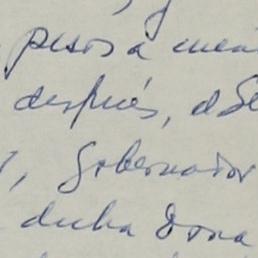 pesos a cuen
después, el Se
, Gobernador
dicha Dona